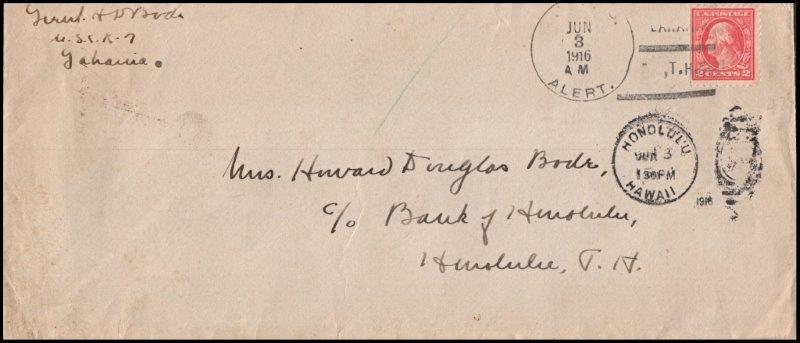 Lieut. H D Bode
U.S.S. K-7
Lahaina.
JUN
3
1916
A M
ALERT.
LAHAINA
,T.H.
U.S. POSTAGE
2 CENTS 2
HONOLULU
JUN 3
130PM
HAWAII
1916
Mrs. Howard Douglas Bode,
c/o Bank of Honolulu,
Honolulu, T. H.